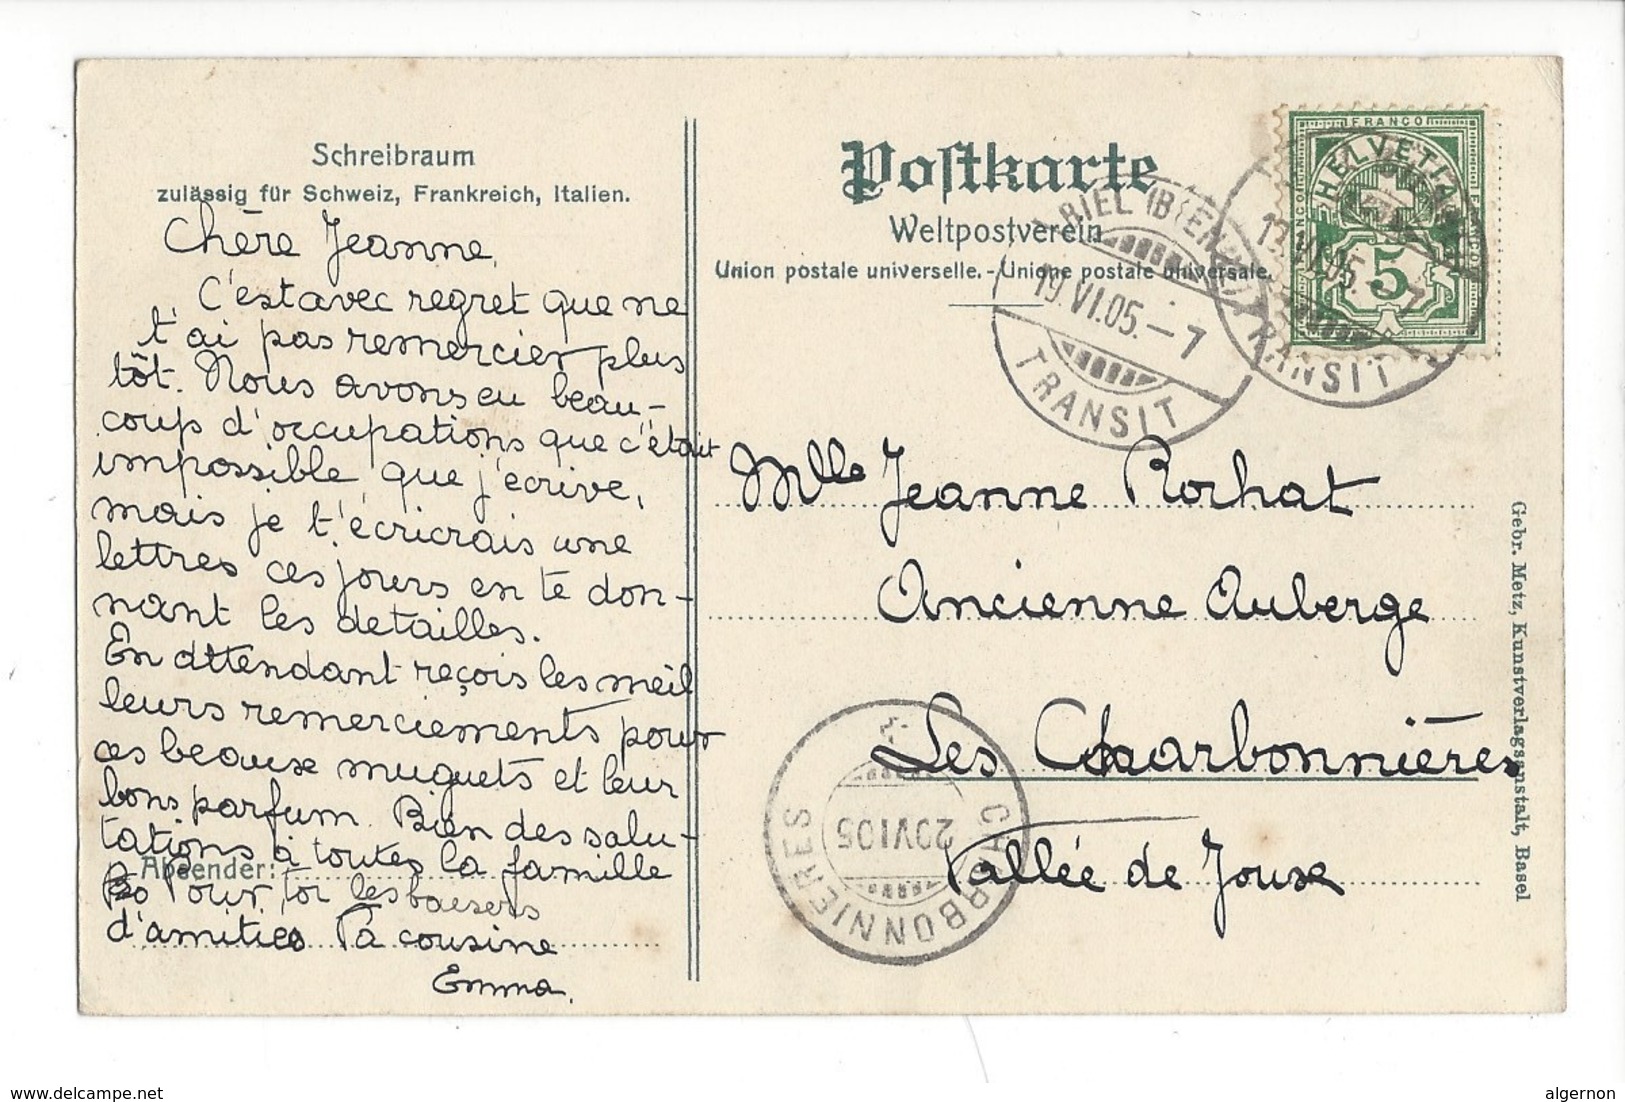 Schreibraum
zulässig für Schweiz, Frankreich, Italien.
Chère Jeanne,
C'est avec regret que ne
t'ai pas remercier plus
tôt. Nous avons eu beau-
coup d'occupations que c'était
impossible que j'écrive,
mais je t'écricrais une
lettres ces jours en te don-
nant les detailles.
En attendant reçois les meil
leurs remerciements pour
ces beause muguets et leur
bons parfum. Bien des salu-
tations à toutes la famille
Absender:
Pour toi les baisers
d'amities Ta cousine
Emma.
Postkarte
Weltpostverein
Union postale universelle. - Unione postale universale.
FRANCO
HELVETIA
5
BIEL (BIENNE)
19.VI.05.–7
TRANSIT
19.VI.05.–7
TRANSIT
Mlle Jeanne Rochat
Ancienne Auberge
Les Charbonnières
Vallée de Joux
CHARBONNIERES
20 VI 05
Gebr. Metz, Kunstverlagsanstalt, Basel
delcampe.net
algernon